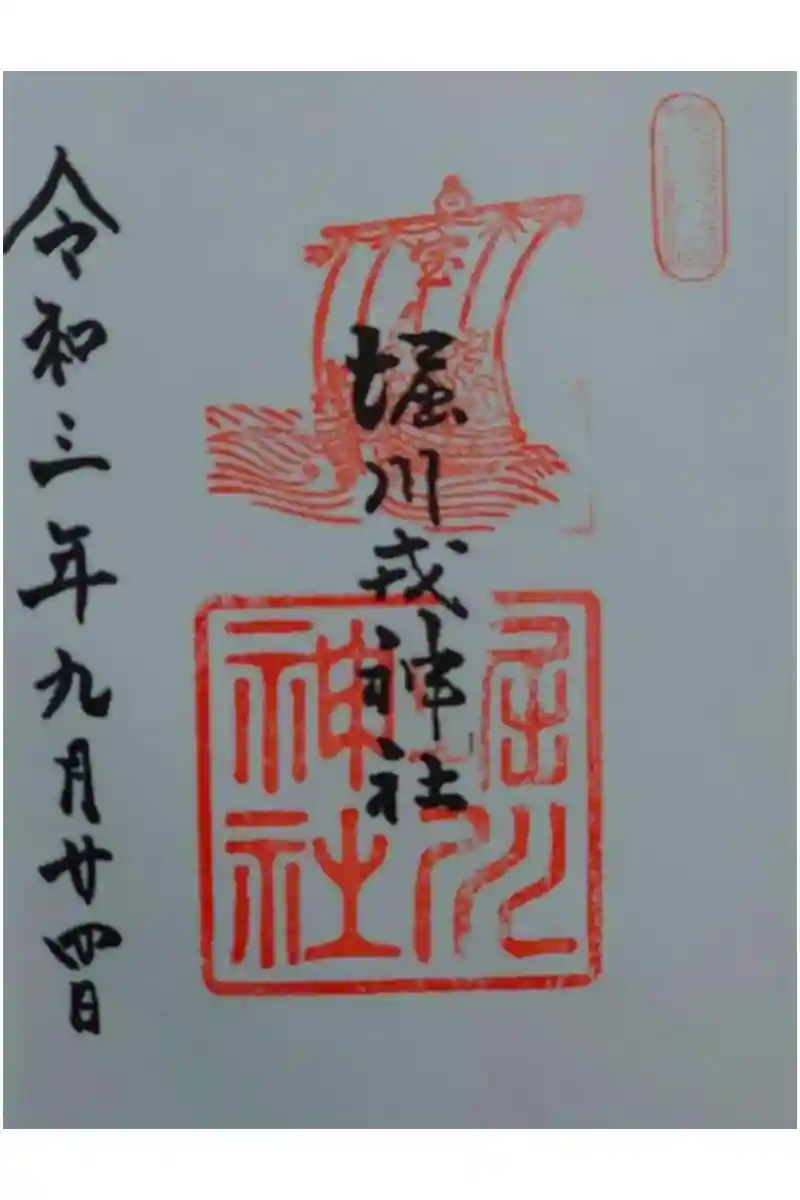 堀川戎神社
令和三年九月廿四日
宝
堀川
神社